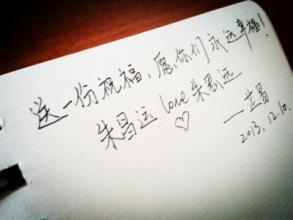 送一份祝福，愿你们永远幸福！
朱昌运 love 朱思远
♡
——芷易
2013.12.10.